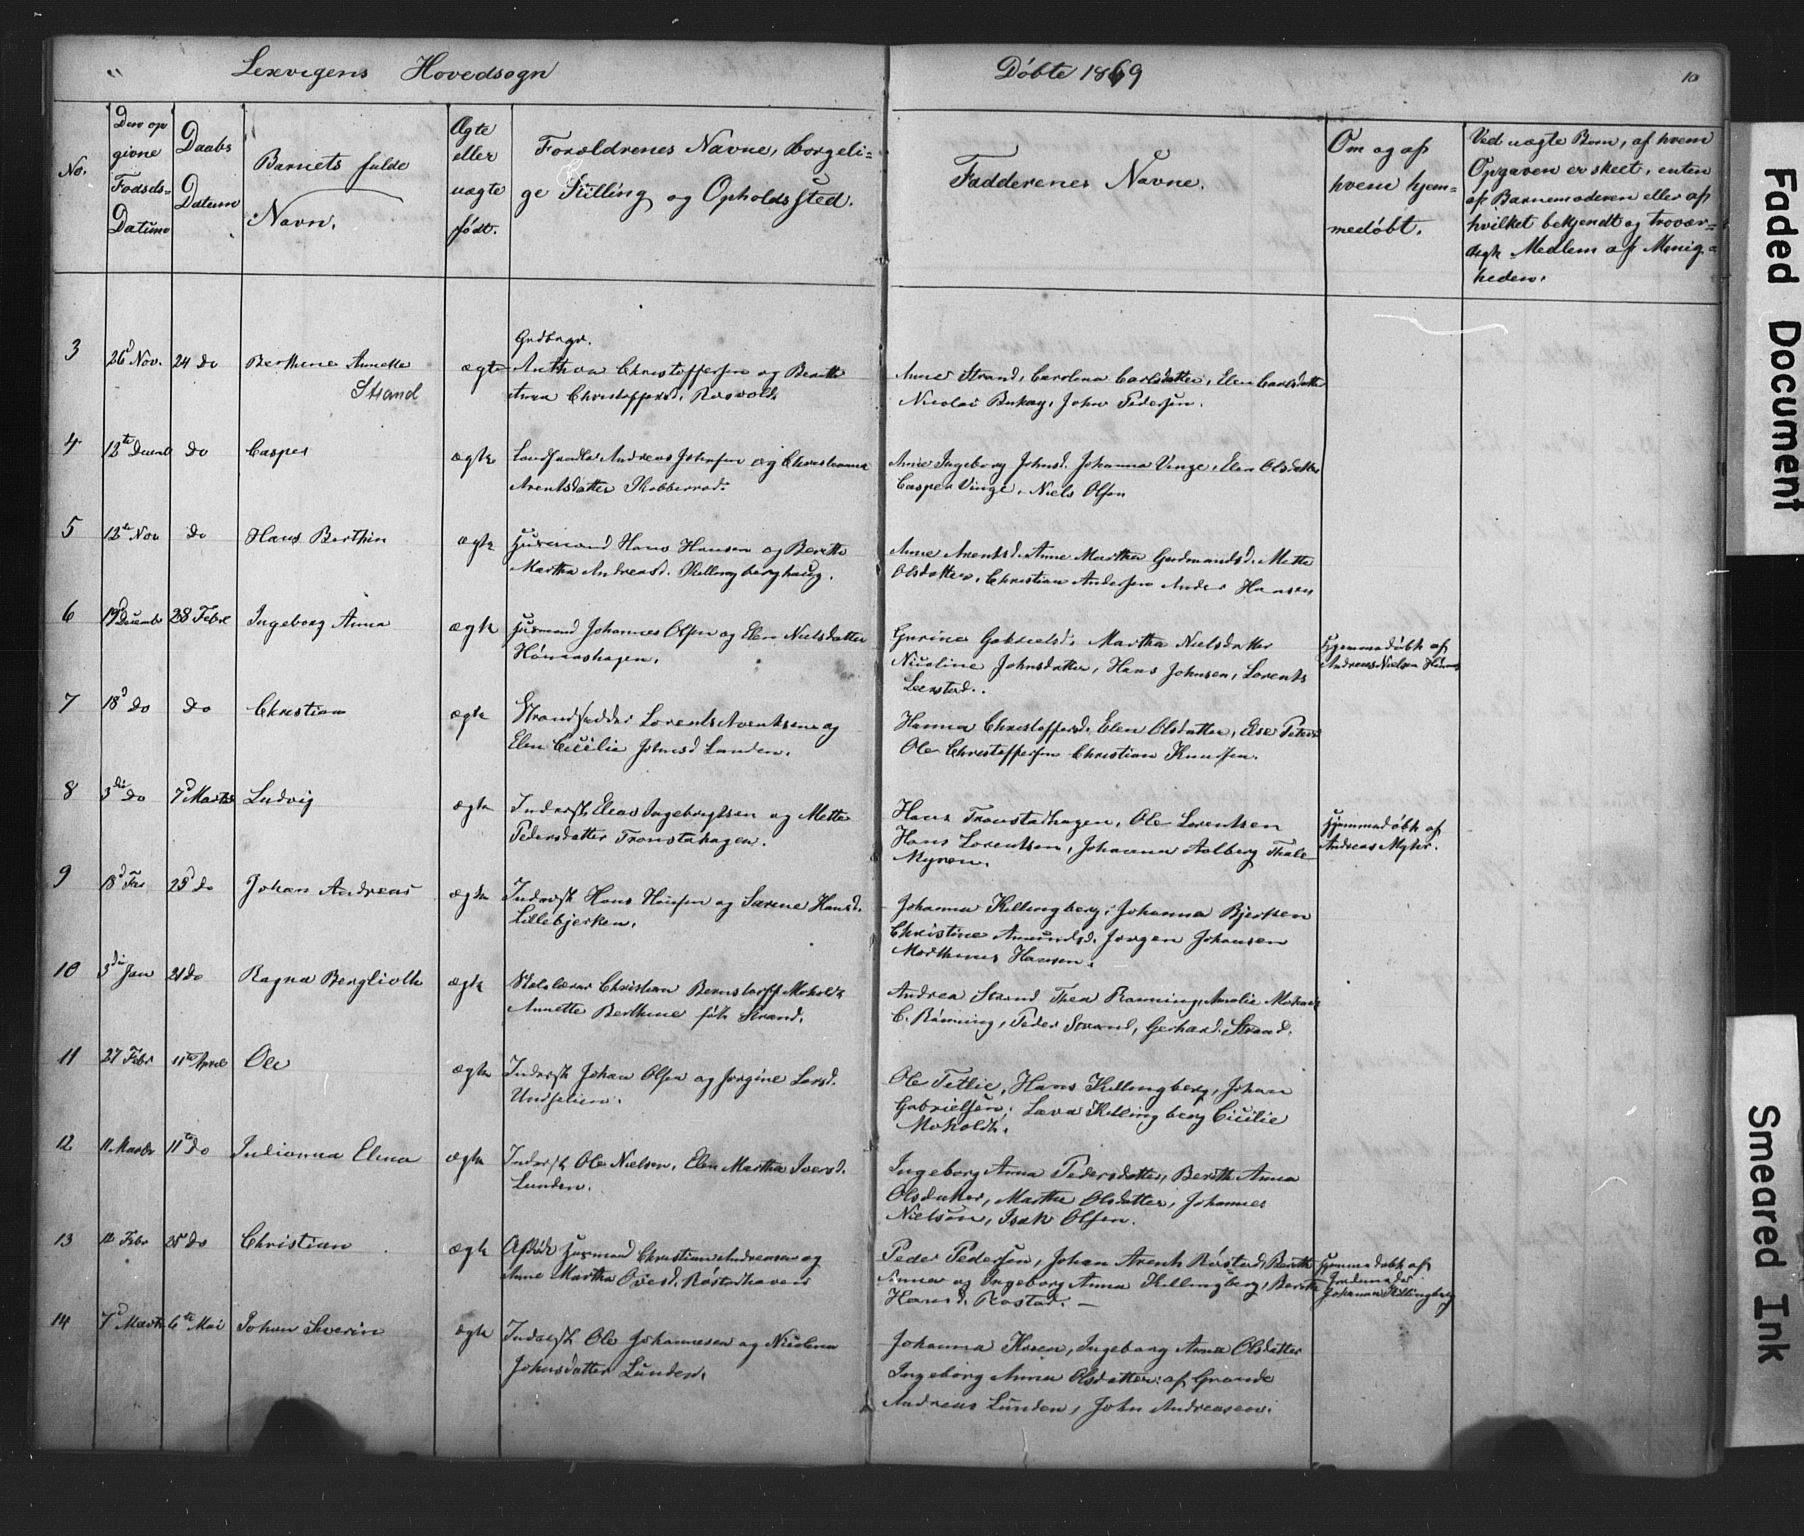 Lexvigens Hovedsogn
Døbte 1869
10
No.
Den op
givne
Fødsels-
Datum
Daabs
Datum
Barnets fulde
Navn.
Ægte
eller
uægte
født.
Forældrenes Navne, borgeli-
ge Stilling og Opholdssted.
Faddernes Navne.
Om og af
hvem hjem-
medøbt.
Ved uægte Børn, af hvem
Opgaven er skeet, enten
af Barnemoderen eller af
hvilket bekjendt og trovær-
digt Medlem af Menig-
heden.
3 26d Nov. 24 do Berthine Annette
Strand
ægte
Grdbrgr.
Anthon Christoffersen og Berith
Anna Christoffersd. Rosvold
Anne Strand, Carolina Carlsdatter, Elen Carlsdatt
Nicolai Bukay, John Pedersen.
4 12te Decemb do Casper ægte
Andreas Johnsen og Christianna
Arentsdatter
Anne Ingeborg Johnsd. Johanna Vinge, Elen Olsdatter
Casper Vinge, Niels Olsen
5 12te Nov do Hans Berthin ægte
Husmand Hans Hansen og Berithe
Martha Andreasd. Killingberghaug.
Anne Arentsd. Anne Martha Gudmundsd. Mette
Olsdatter, Christian Andersen Ander Hansen
6 19d Decembr 28 Febr Ingeborg Anna ægte
Husmand Johannes Olsen og Elen Nielsdatter
Hømoshagen.
Gurine Gabrielsd. Martha Nielsdatter
Nicoline Johnsdatter, Hans Johnsen, Lorents
Leerstad.
Hjemmedøbt af
Andreas Nielsen
7 18d do do Christian ægte
Strandsidder Lorents Arentsen og
Elen Cicilie Johnsd Lunden.
Hanna Christoffersd. Elen Olsdatter, Else Peters
Ole Christoffersen Christian Knudsen.
8 3die do 7d Marts Ludvig ægte
Inderst Elias Ingebrigtsen og Mette
Pedersdatter Tronstahagen.
Hans Tronstadhagen, Ole Lorentsen
Hans Lorentsen, Johanna Aalberg Thale
Myren.
Hjemmedøbt af
Andreas Myhr.
9 18d Feb 25d do Johan Andreas ægte
Inderst Hans Hansen og Serine Hansd.
Lillebjerken.
Johanna Killingberg, Johanna Bjerken
Christine Amundsd. Jørgen Johansen
Marthinus Hansen.
10 3die Jan 21 do Ragna Berglioth ægte
Skolelærer Christian Bernstorff Moholdt
Annette Berthine født Strand.
Andrea Strand Thea Rønning, Amalie Moholdt
C. Rønning, Peder Strand, Gerhard Strand.
11 27 Febr 11te April Ole ægte
Inderst Johan Olsen og Jørgine Larsd.
Undselien.
Ole Tetlie, Hans Killingberg, Johan
Gabrielsen, Lava Killingberg Cicilie
Moholdt.
12 11 Marts 11te do Julianna Elina ægte
Inderst Ole Nielsen, Elen Martha Iversd.
Lunden.
Ingeborg Anna Pedersdatter, Berith Anna
Olsdatter, Martha Olsdatter, Johannes
Nielsen, Isak Olsen.
13 12 Febr 25d do Christian ægte
Afdøde Husmand Christian Andreasen og
Anne Martha Olesd. Røstadhaven
Peder Pedersen, Johan Arent Røstad, Berith
Anna og Ingeborg Anna Killingberg, Berith
Hansd. Røstad. —
Hjemmedøbt af
Jordemoder
Johanna Killingberg
14 7d Marts 6te Mai Johan Severin ægte
Inderst Ole Johannesen og Nicolina
Johnsdatter Lunden.
Johanna Koren, Ingeborg Anna Olsdatter
Ingeborg Anna Olsdatter af Grande
Andreas Lunden, John Andreasen.
Faded Document
Smeared Ink